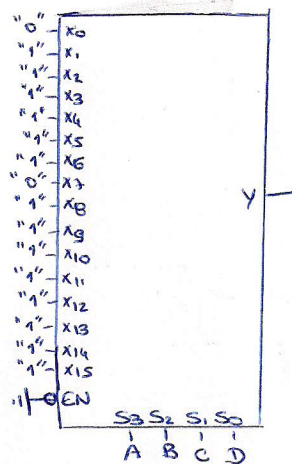 "0" X0
"1" X1
"1" X2
"1" X3
"1" X4
"1" X5
"1" X6
"0" X7
"1" X8
"1" X9
"1" X10
"1" X11
"1" X12
"1" X13
"1" X14
"1" X15
Y
EN
S3 S2 S1 S0
A B C D